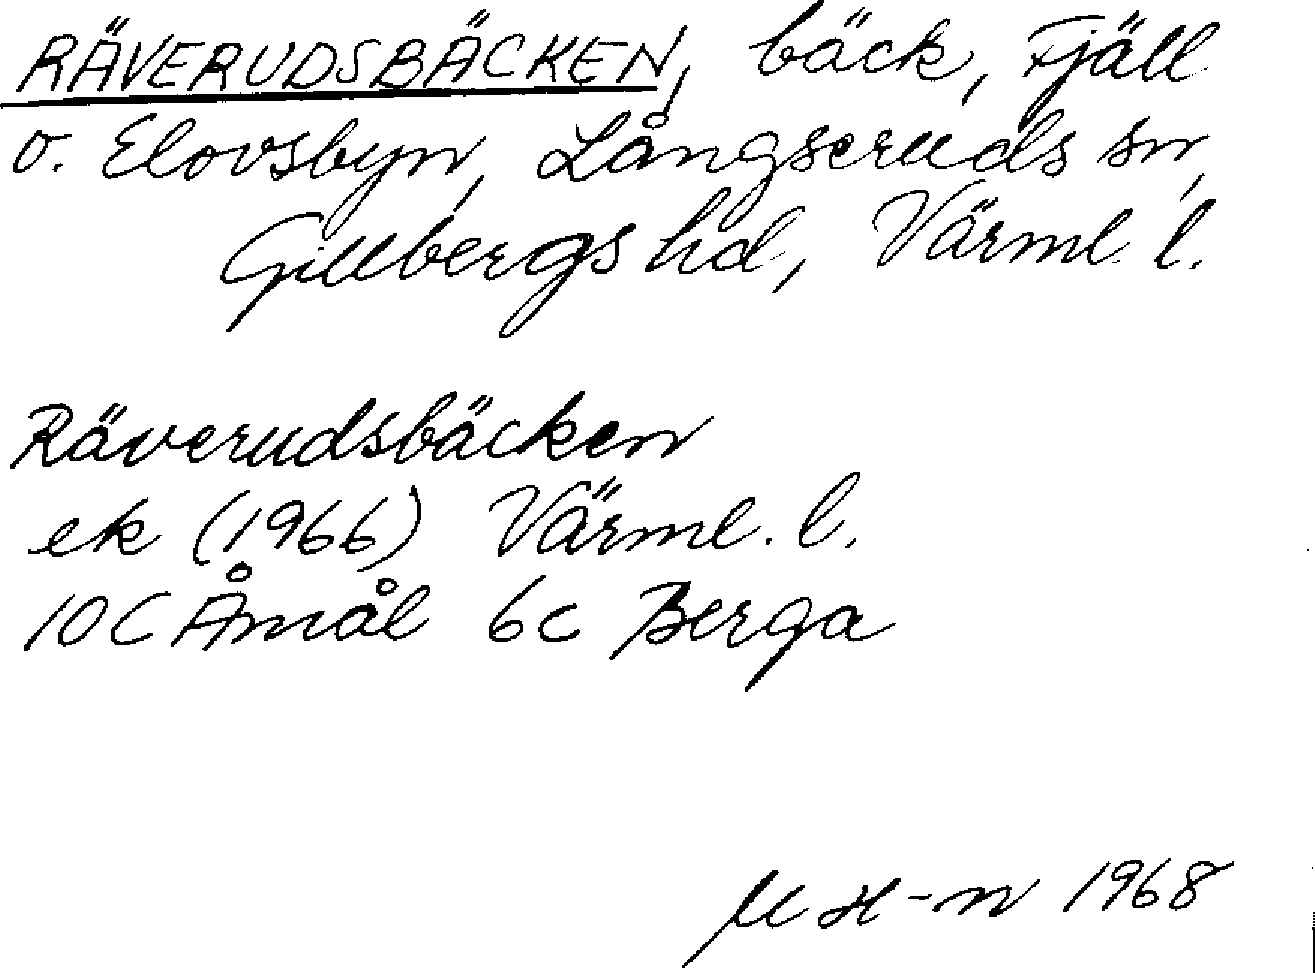 RÄVERUDSBÄCKEN, bäck, Fjäll
o. Elovsbyn, Långseruds sn,
Gillbergs hd, Värml. l.
Räverudsbäcken
ek (1966) Värml. l.
10C Åmål 6c Berga
M H-n 1968